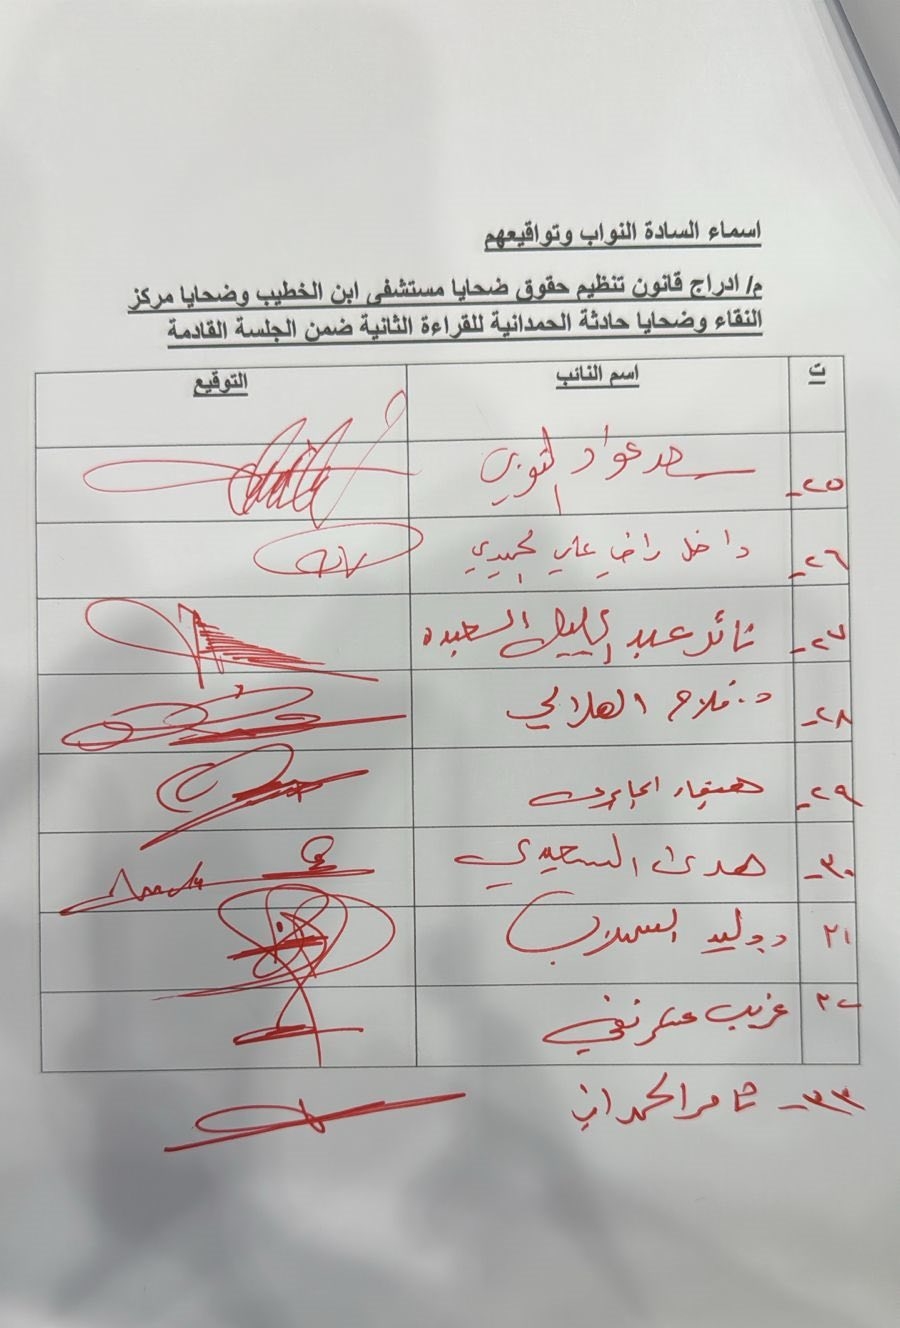 اسماء السادة النواب وتواقيعهم
م/ ادراج قانون تنظيم حقوق ضحايا مستشفى ابن الخطيب وضحايا مركز
النقاء وضحايا حادثة الحمدانية للقراءة الثانية ضمن الجلسة القادمة
ت اسم النائب التوقيع
٢٥- عواد
٢٦- داخل راضي علي
٢٧- ثائر عبد
٢٨- د. فلاح الهلالي
٢٩- هيفاء الجابري
٣٠- هدى السعيدي
٣١ د وليد السهلاني
٣٢ غريب عسكر نفي
٣٣- ثامر الحمداني